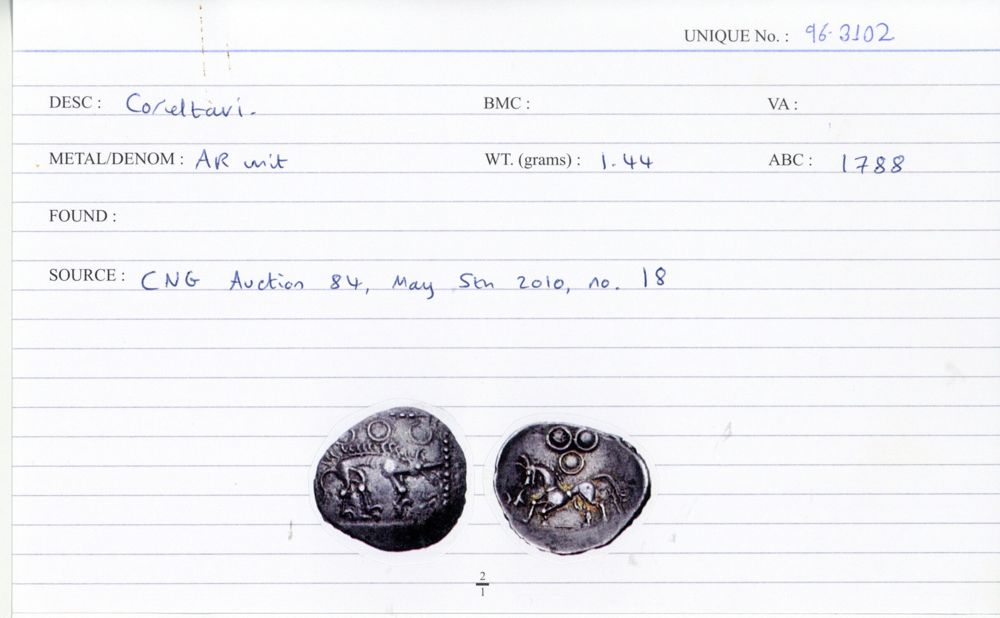 UNIQUE No. : 96.3102
DESC : Corieltavi. BMC : VA :
METAL/DENOM : AR unit WT. (grams) : 1.44 ABC : 1788
FOUND :
SOURCE : CNG Auction 84, May 5th 2010, no. 18
2
1